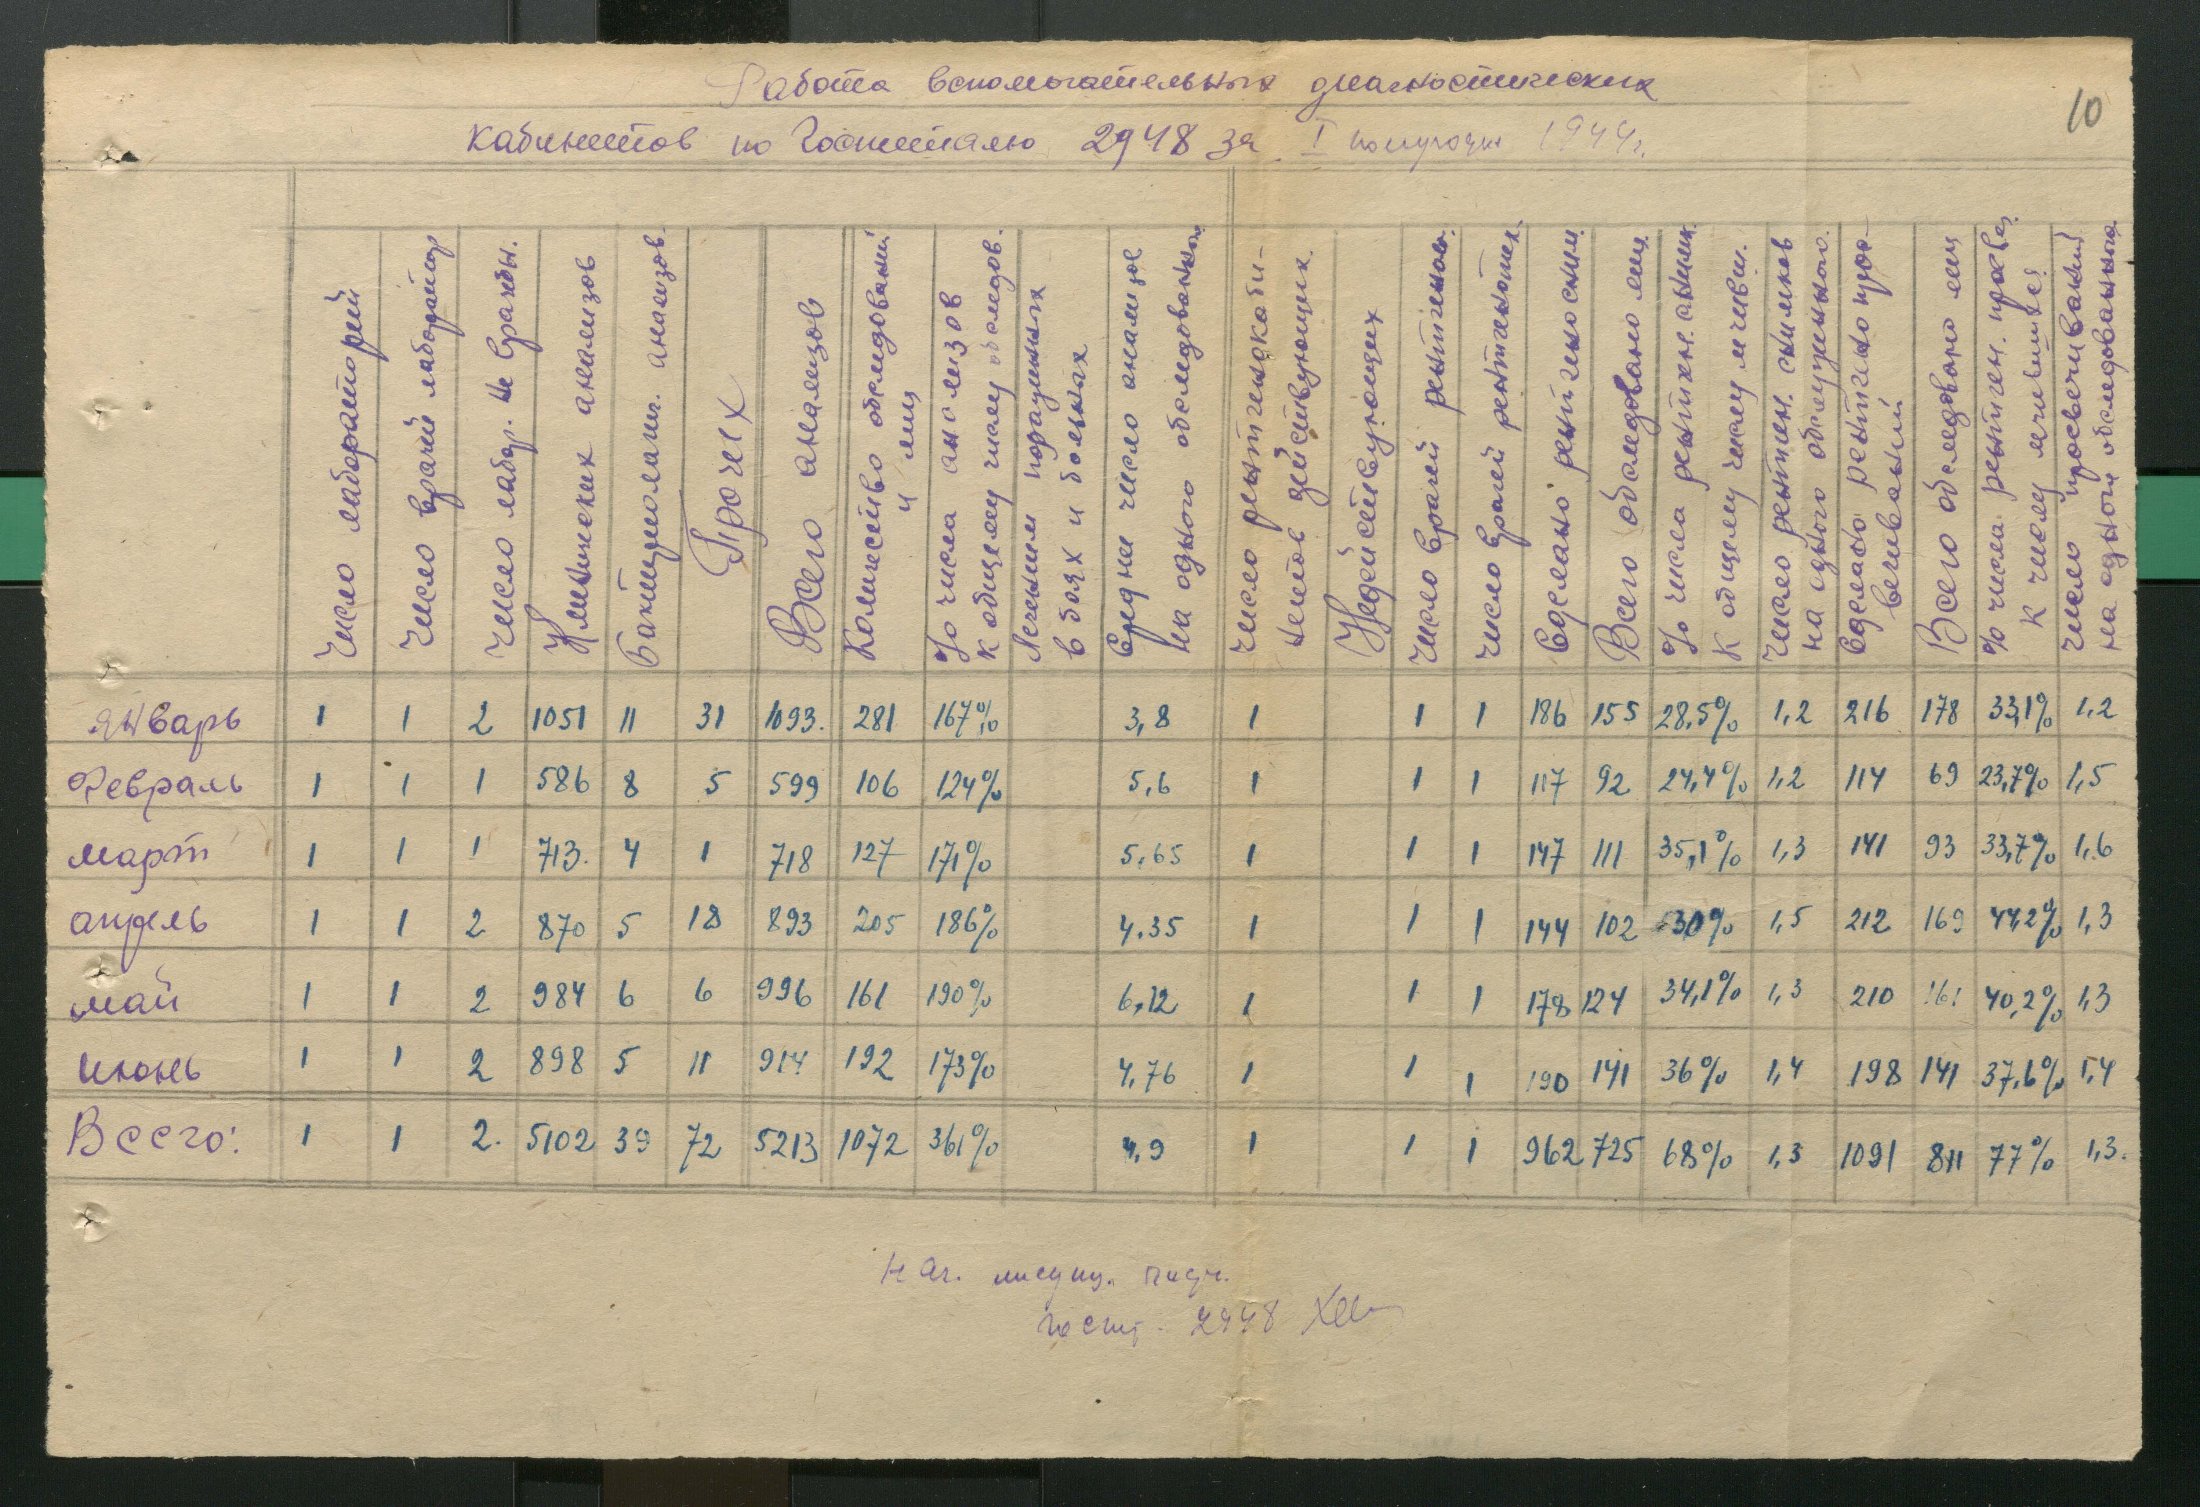 10
Работа вспомогательных диагностических
кабинетов по Госпиталю 2948 за I полугодие 1944 г.
Число лабораторий
Число врачей лаборантов
Число лабор. не врачебн.
Клинических анализов
Бактериолог. анализов
Прочих
Всего анализов
Количество обследований
и лиц
% числа анализов
к общему числу обследов.
в боях и больных
Средне число анализов
на одного обследованных
Число рентгенкаби-
нетов действующих
Недействующих
Число врачей рентгеноло.
Число врачей рентгенотех.
Сделано рентгеносним.
Всего обследовано лиц
% числа рентген. сним.
к общему числу лечивш.
Число рентген. снимков
на одного обслуженного.
Сделано рентгено прос-
вечиваний
Всего обследовано лиц
% числа рентген. просвеч.
к числу лечивших
Число просвечиваний
на одного обследованных
Январь 1 1 2 1051 11 31 1093. 281 167% 3,8 1 1 1 186 155 28,5% 1,2 216 178 33,1% 1,2
Февраль 1 1 1 586 8 5 599 106 124% 5,6 1 1 1 117 92 24,4% 1,2 114 69 23,7% 1,5
Март 1 1 1 713. 4 1 718 127 171% 5,65 1 1 1 147 111 35,1% 1,3 141 93 33,7% 1,6
Апрель 1 1 2 870 5 18 893 205 186% 4.35 1 1 1 144 102 30% 1,5 212 169 44,2% 1,3
Май 1 1 2 984 6 6 996 161 190% 6,12 1 1 1 178 124 34,1% 1,3 210 161 40,2% 1,3
Июнь 1 1 2 898 5 11 914 192 173% 4,76 1 1 1 190 141 36% 1,4 198 141 37,6% 1,4
Всего: 1 1 2. 5102 39 72 5213 1072 361% 4,9 1 1 1 962 725 68% 1,3 1091 811 77% 1,3.
Нач.
госп. 2948